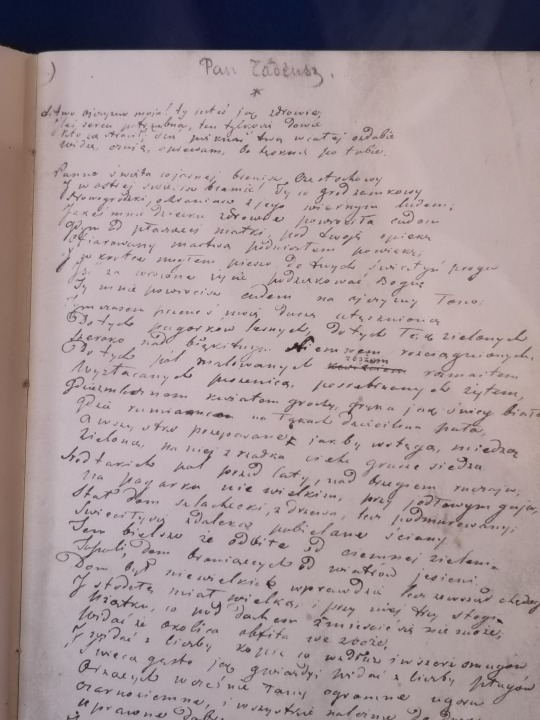 Pan Tadeusz.
*
Litwo ojczyzno moja! ty jesteś jak zdrowie;
ten tylko się dowie
Kto cię stracił, dziś piękność twą w całej ozdobie
Widzę, czuję, opiewam, bo tęsknię po tobie.
Panno Święta co jasnej bronisz Częstochowy
I w ostrej świecisz bramie! Ty co gród zamkowy
Nowogródzki, ochraniasz z jego wiernym ludem;
Jak mnie dziecku zdrowie powróciła cudem
Gdym od płaczącej matki, pod twoję opiekę
Ofiarowany martwą podniosłem powiekę;
I zaraz mogłem pieszo do twych świątyń progu
Iść za wrócone życie podziękować Bogu;
Ty mnie powrócisz cudem na ojczyzny łono;
Tymczasem przenoś moją duszę utęsknioną
Do tych pagórków leśnych, do tych łąk zielonych
Szeroko nad błękitnym Niemnem rozciągnionych,
Do tych pól malowanych zbożem rozmaitem
Wyzłacanych pszenicą, posrebrzanych żytem,
Gdzie kwiatem grochy, gryka jak śnieg biała
Gdzie na łąkach dzięcielina pała,
A wszystko przepasane jakby wstęgą, miedzą
Zieloną, na niej z rzadka ciche grusze siedzą
Śród takich pól przed laty, nad brzegiem ruczaju,
Na pagórku niewielkim, przy jodłowym gaju,
Stał dom szlachecki, z drzewa, lecz podmurowany;
Świeciły się zdaleka pobielane ściany
Tem bielsze że odbite od ciemnej zieleni
Topoli, co bronią od wiatrów jesieni
Dom był niewielki wprawdzie lecz zewsząd chędogi
I stodołę miał wielką, i przy niej trzy stogi
Użątku, co pod dachem zmieścić się nie może;
Widać że okolica obfita we zboże,
I widać z liczby kopic co wzdłuż i wszerz smugów
Świecą gęsto jak gwiazdy widać z liczby pługów
Orzących wcześnie łany ogromne ugoru
czarnoziemne,